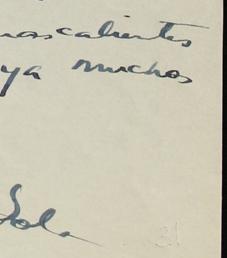 nascalientes
ya muchos
Lola
31